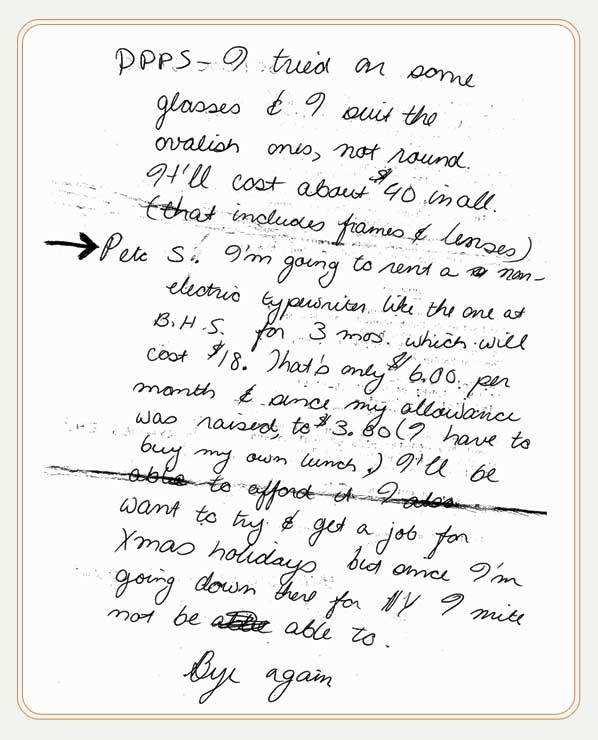 PPPS - I tried on some
glasses & I suit the
ovalish ones, not round.
It'll cost about $40 in all.
(that includes frames & lenses)
Pete S.: I'm going to rent a non-
electric typewriter like the one at
B.H.S. for 3 mos. which will
cost $18. That's only $6.00 per
month & since my allowance
was raised, to $3.60 (I have to
buy my own lunch,) I'll be
able to afford it I also
want to try & get a job for
Xmas holidays but since I'm
going down there for NY I mite
not be able to.
Bye again